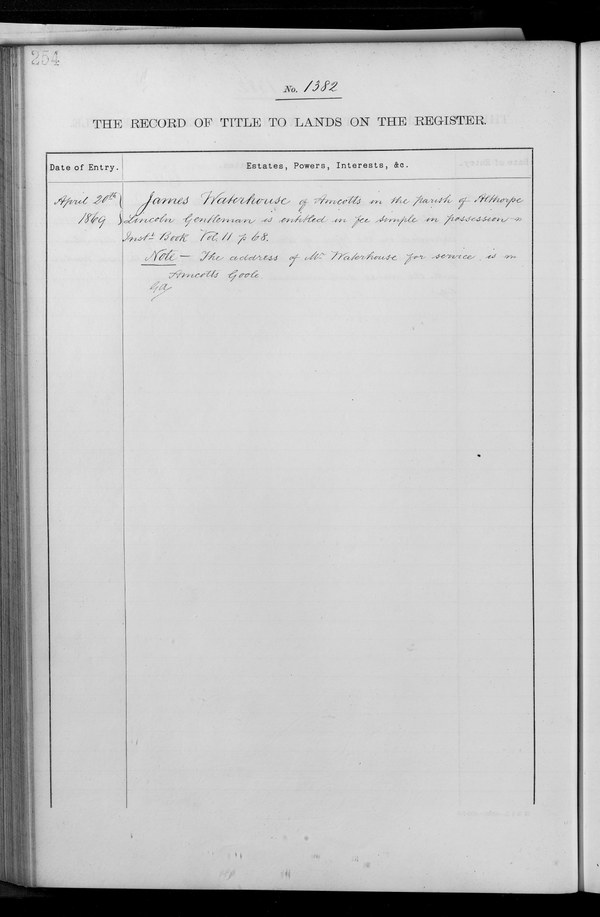 254
No. 1382
THE RECORD OF TITLE TO LANDS ON THE REGISTER.
Date of Entry.
Estates, Powers, Interests, &c.
April 20th
1869
James Waterhouse of Amcotts in the parish of Althorpe
Lincoln Gentleman is entitled in fee simple in possession
Inst. Book Vol. 11 p 68.
Note — The address of Mr Waterhouse for service is
Amcotts Goole